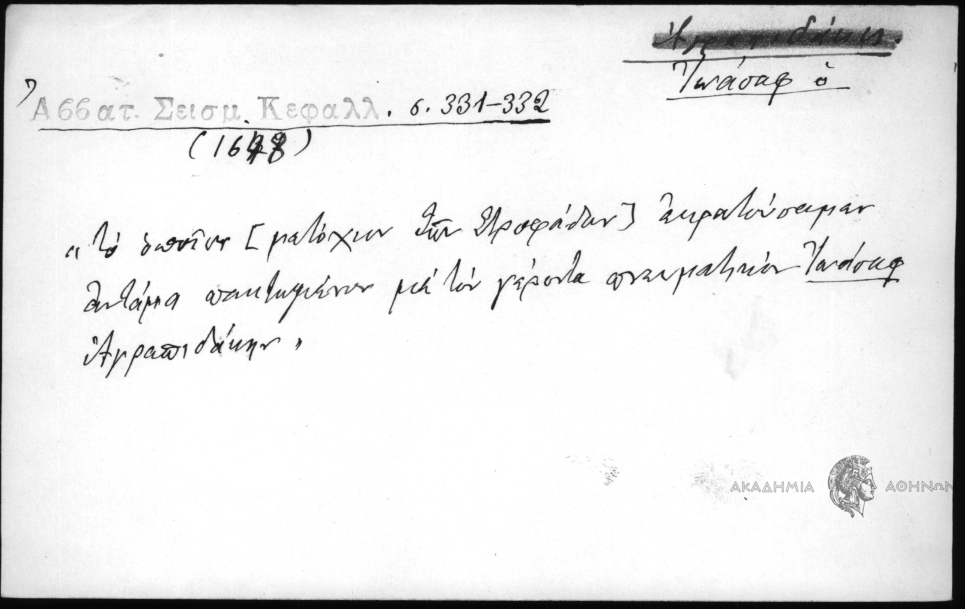 Ἀγραπιδάκης.
Ἰωάσαφ ὁ
Ἀββατ. Σεισμ. Κεφαλλ. σ. 331-332
(1648)
"τὸ ὁποῖον [μετόχιον τῶν Στροφάδων] ἐκρατούσαμεν
ἀντάμα πακτωμένον μὲ τὸν γέροντα πνευματικὸν Ἰωάσαφ
Ἀγραπιδάκην"
ΑΚΑΔΗΜΙΑ ΑΘΗΝΩΝ